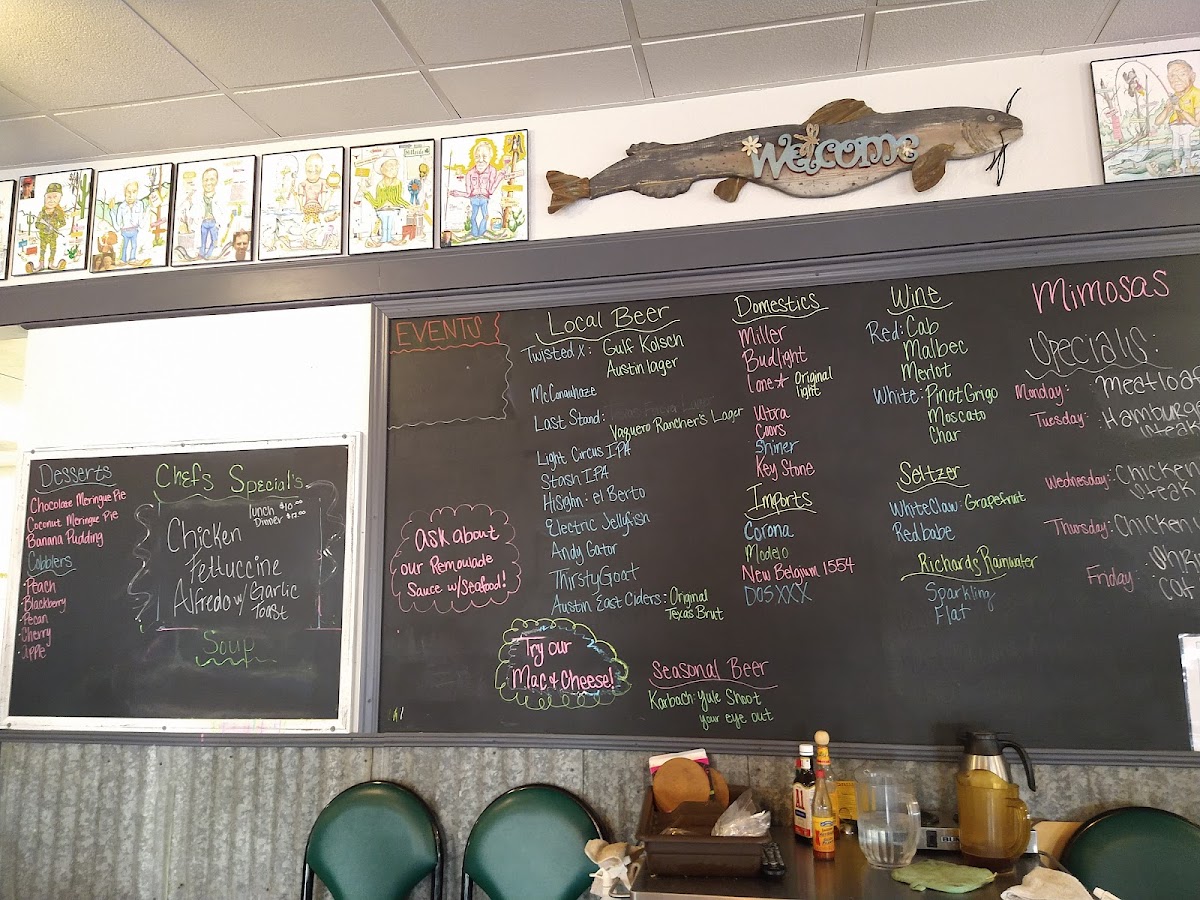 Welcome
Desserts
Chocolate Meringue Pie
Coconut Meringue Pie
Banana Pudding
Cobblers
· Peach
· Blackberry
· Pecan
· Cherry
· Apple
Chefs Special's
lunch $10.00
Dinner
Chicken
Fettuccine
Alfredo w/ Garlic
Toast
Soup
EVENTS
Ask about
our Remoulade
Sauce w/Seafood!
Local Beer
Twisted X: Gulf Kolsch
Austin lager
McConauhaze
Last Stand:
Vaquero Rancher's Lager
Light Circus IPA
Stash IPA
Hisighn: el Berto
Electric Jellyfish
Andy Gator
Thirsty Goat
Austin East Ciders: Original
Texas Brut
Try our
Mac & Cheese!
Seasonal Beer
Karbach: Yule Shoot
your eye out
Domestics
Miller
Budlight
lone★ Original
light
Ultra
Coors
Shiner
Key Stone
Imports
Corona
Modelo
New Belgium 1554
DOS XXX
Wine
Red: Cab
Malbec
Merlot
White: Pinot Grigo
Moscato
Char
Seltzer
White Claw: Grapefruit
Red babe
Richards Rainwater
Sparkling
Flat
Mimosas
Specials:
Monday: Meatloaf
Tuesday: Hamburge
steak
Wednesday: Chicken
Steak
Thursday: Chicken
Friday: Shri
Cat